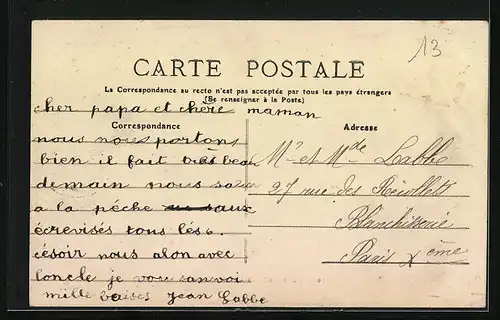 13
CARTE POSTALE
La Correspondance au recto n'est pas acceptée par tous les pays étrangers
(Se renseigner à la Poste)
cher papa et chère maman
Correspondance
Adresse
nous nous portons
bien il fait très beau
demain nous
a la pêche aux
écrevises tous lés 6.
césoir nous alon avec
loncle je vou zanvoi
mille baises Jean Labbe
Mr et Mde Labbe
27 rue des Récollets
Blanchisserie
Paris Xème